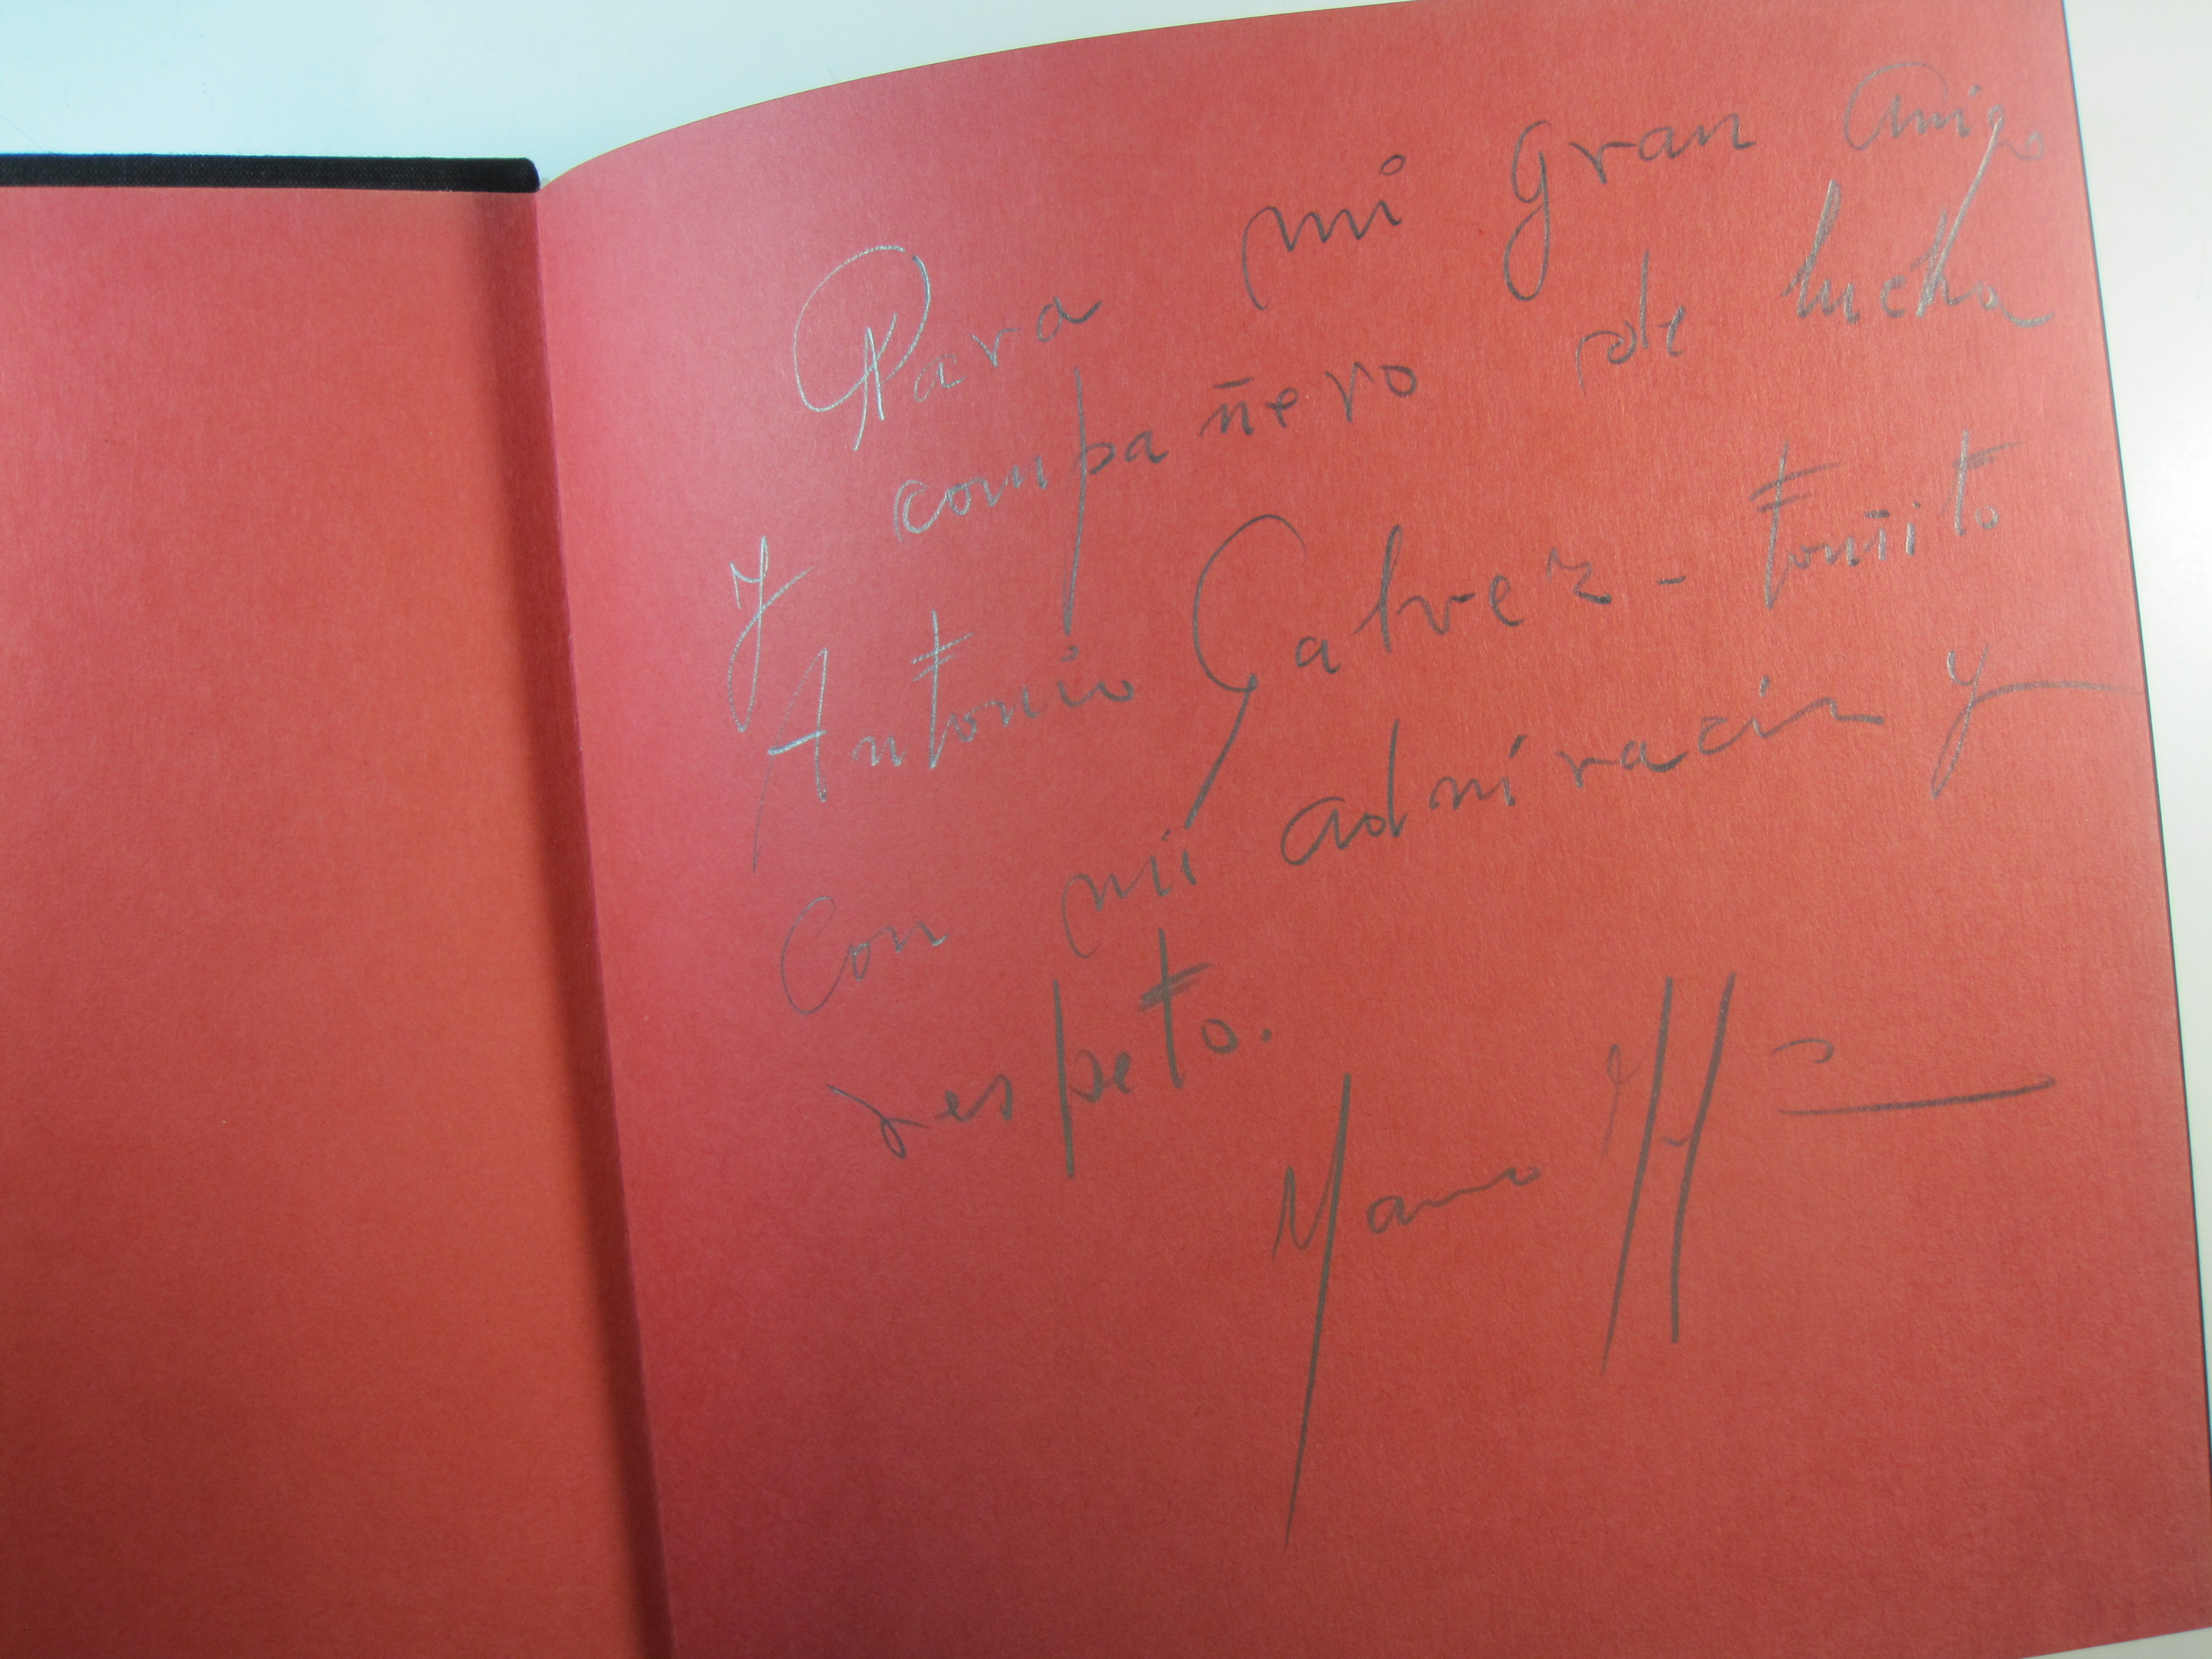 Para mi gran amigo
y compañero de lucha
Antonio Galvez - Toñito
Con mi admiración y
respeto.